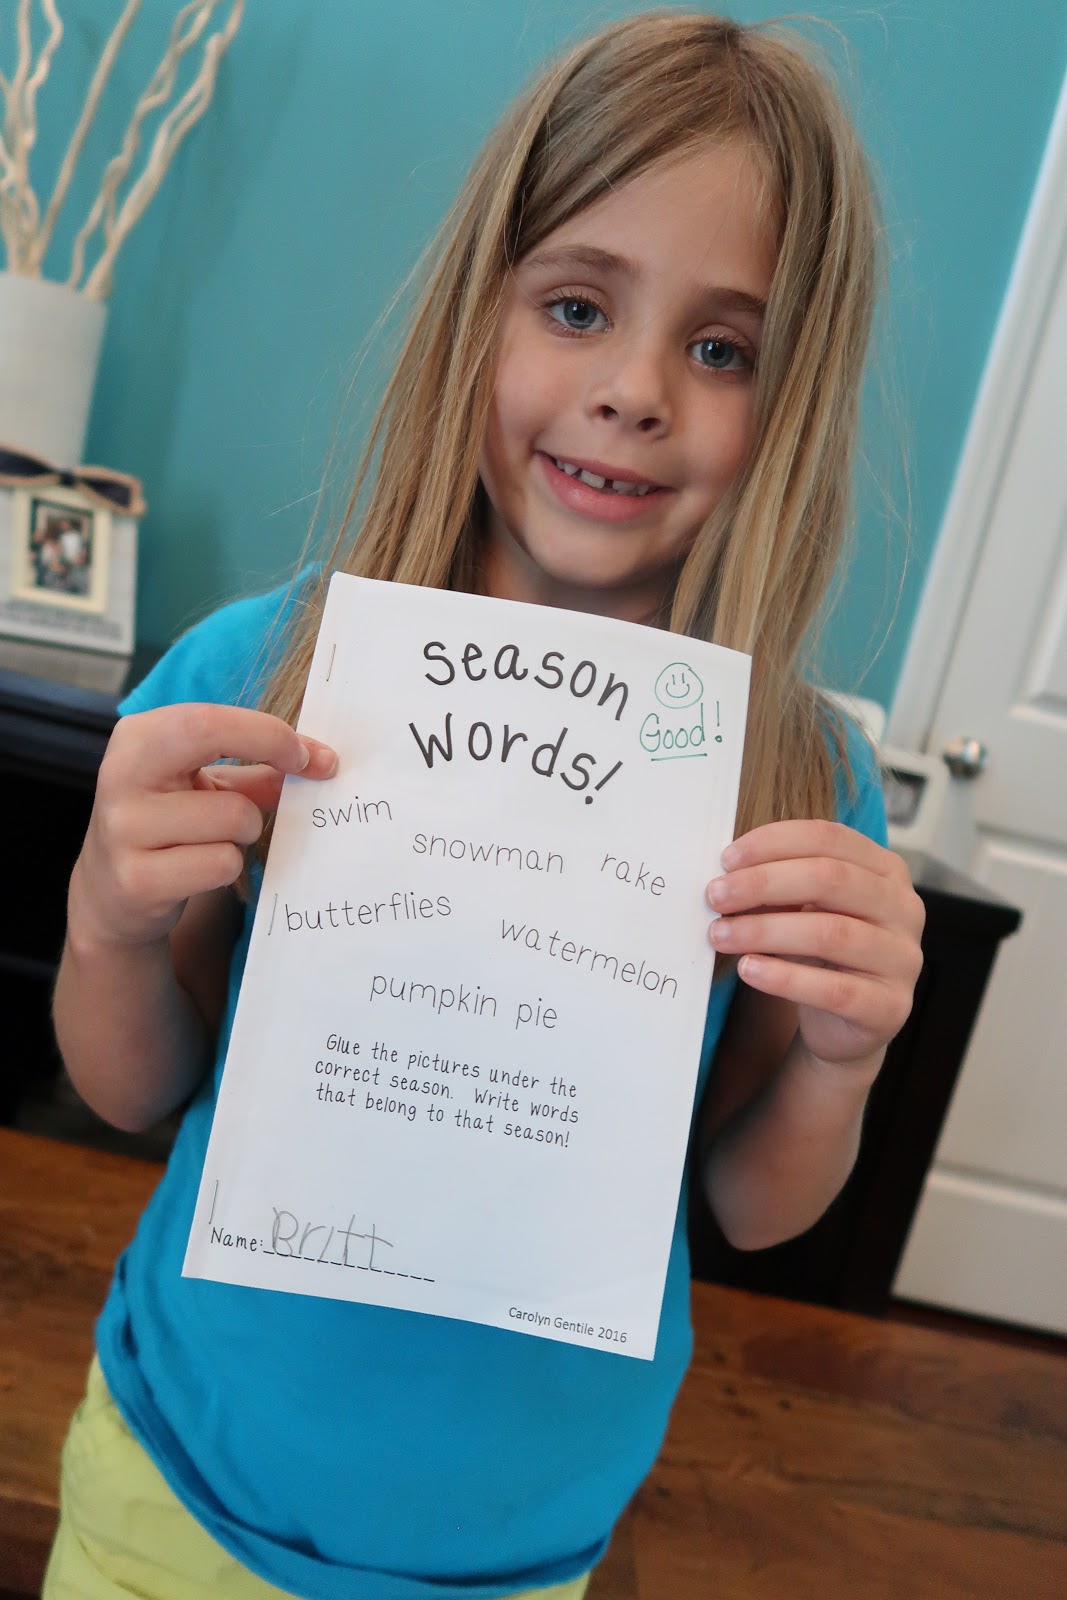 season
words!
Good!
swim
snowman rake
butterflies
watermelon
pumpkin pie
Glue the pictures under the
correct season. Write words
that belong to that season!
Name: Britt
Carolyn Gentile 2016